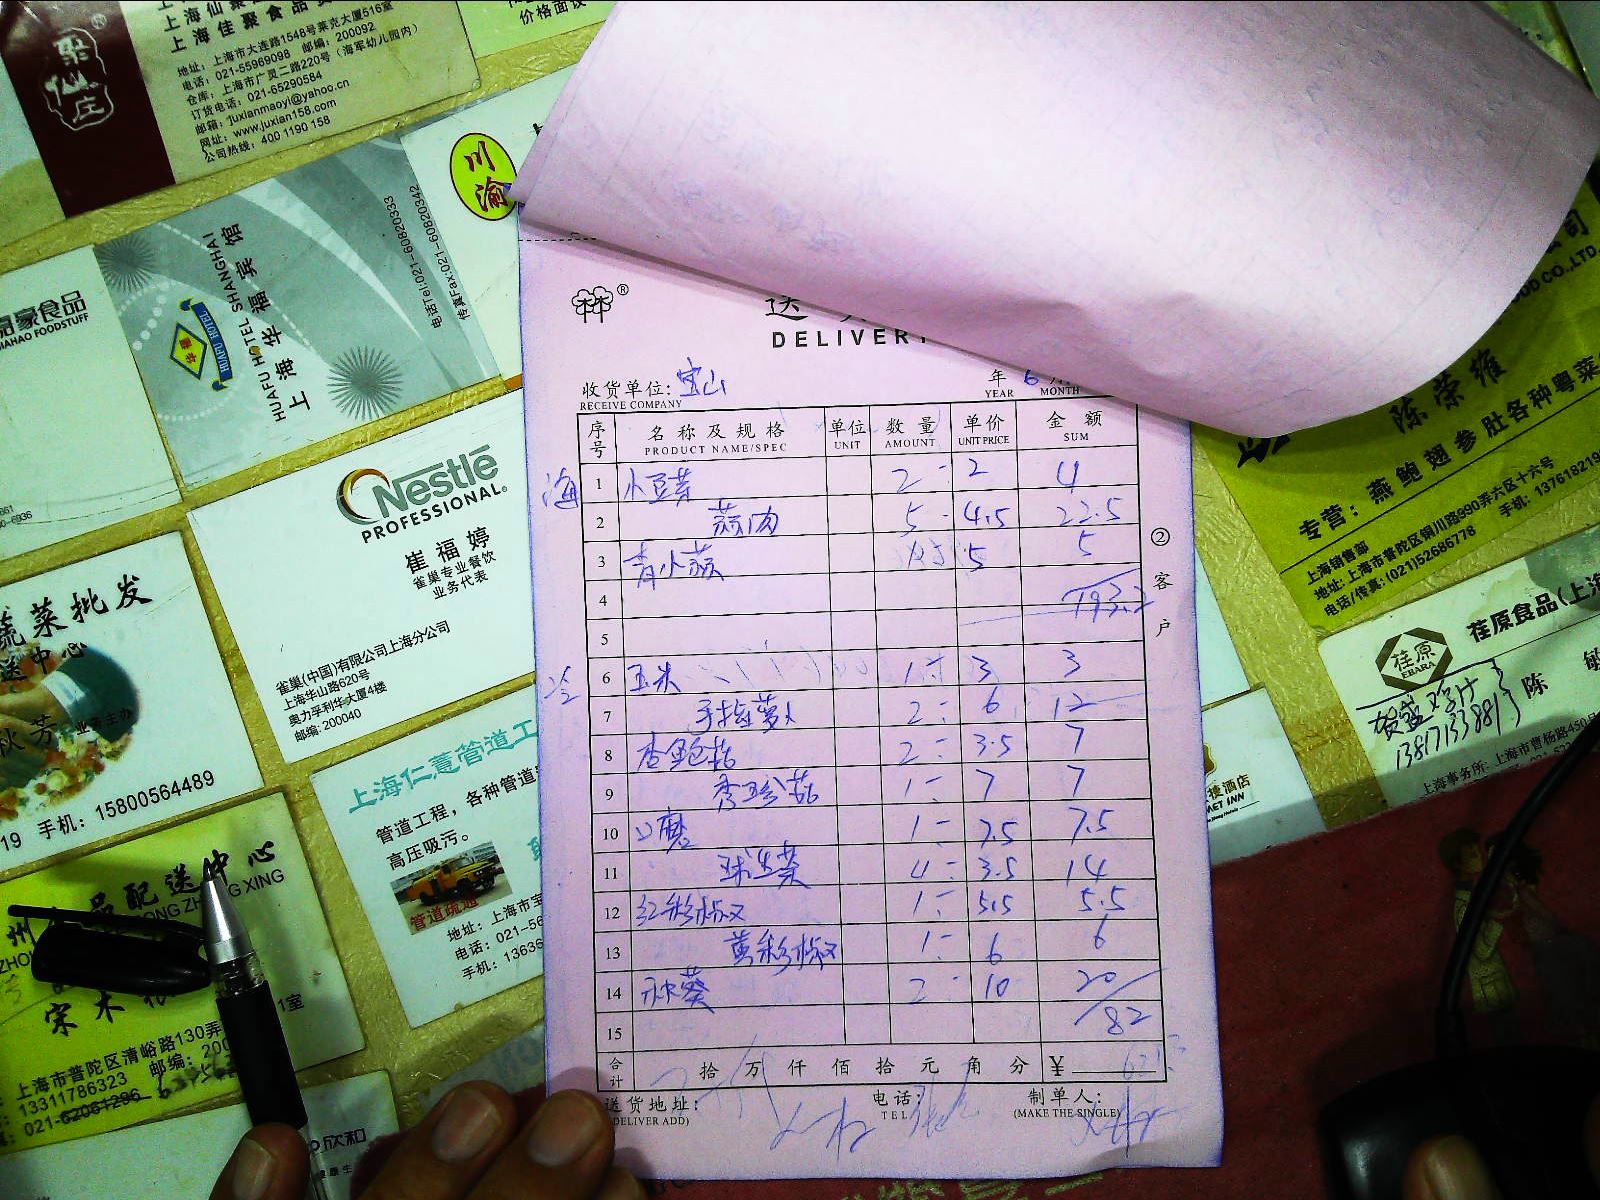 上海佳聚食品
地址：上海市大连路1548号莱克大厦516室
电话：021-55969098 邮编：200092
仓库：上海市广灵二路220号（海军幼儿园内）
订货电话：021-65290584
邮箱：juxianmaoyi@yahoo.cn
网址：www.juxian158.com
公司热线：400 1190 158
聚仙庄
价格面议
川渝
HUAFU HOTEL
HUAFU HOTEL SHANGHAI
上海华福宾馆
电话Tel:021-60820333
传真Fax:021-60820342
家食品
JIAHAO FOODSTUFF
Nestlé
PROFESSIONAL
崔福婷
雀巢专业餐饮
业务代表
雀巢(中国)有限公司上海分公司
上海华山路620号
奥力孚利华大厦4楼
邮编:200040
蔬菜批发
送中心
秋芳 业务主办
19 手机：15800564489
上海仁慧管道工
管道工程，各种管道
高压吸污。
管道疏通
地址：上海市宝
电话：021-56
手机：13636
品配送中心
宋木
1室
上海市普陀区清峪路130弄
13311786323 邮编：200
021-62061296
欣和
送
DELIVERY
收货单位：宝山 年 6
RECEIVE COMPANY YEAR MONTH
序号 名称及规格 单位 数量 单价 金额
PRODUCT NAME/SPEC UNIT AMOUNT UNIT PRICE SUM
海 1 小豆芽 2 2 4
2 蒜肉 5 4.5 22.5
3 青小蒜 5 5
4 193.2
5
冷 6 玉米 1 3 3
7 手指萝卜 2 6 12
8 杏鲍菇 2 3.5 7
9 秀珍菇 1 7 7
10 口蘑 1 7.5 7.5
11 球生菜 4 3.5 14
12 红彩椒 1 5.5 5.5
13 黄彩椒 1 6 6
14 秋葵 2 10 20
15 82
合计： 拾 万 仟 佰 拾 元 角 分 ¥
送货地址： 电话： 制单人：
(DELIVER ADD) TEL (MAKE THE SINGLE)
②客户
公司
FOOD CO.,LTD.
陈荣维
专营：燕鲍翅参肚各种粤菜
上海销售部
地址：上海市普陀区铜川路990弄六区十六号
电话/传真：(021)52686778 手机：137618219
荏原
EBARA
荏原食品(上海
陈 敏
13817133881
上海事务所：上海市曹杨路450号
捷酒店